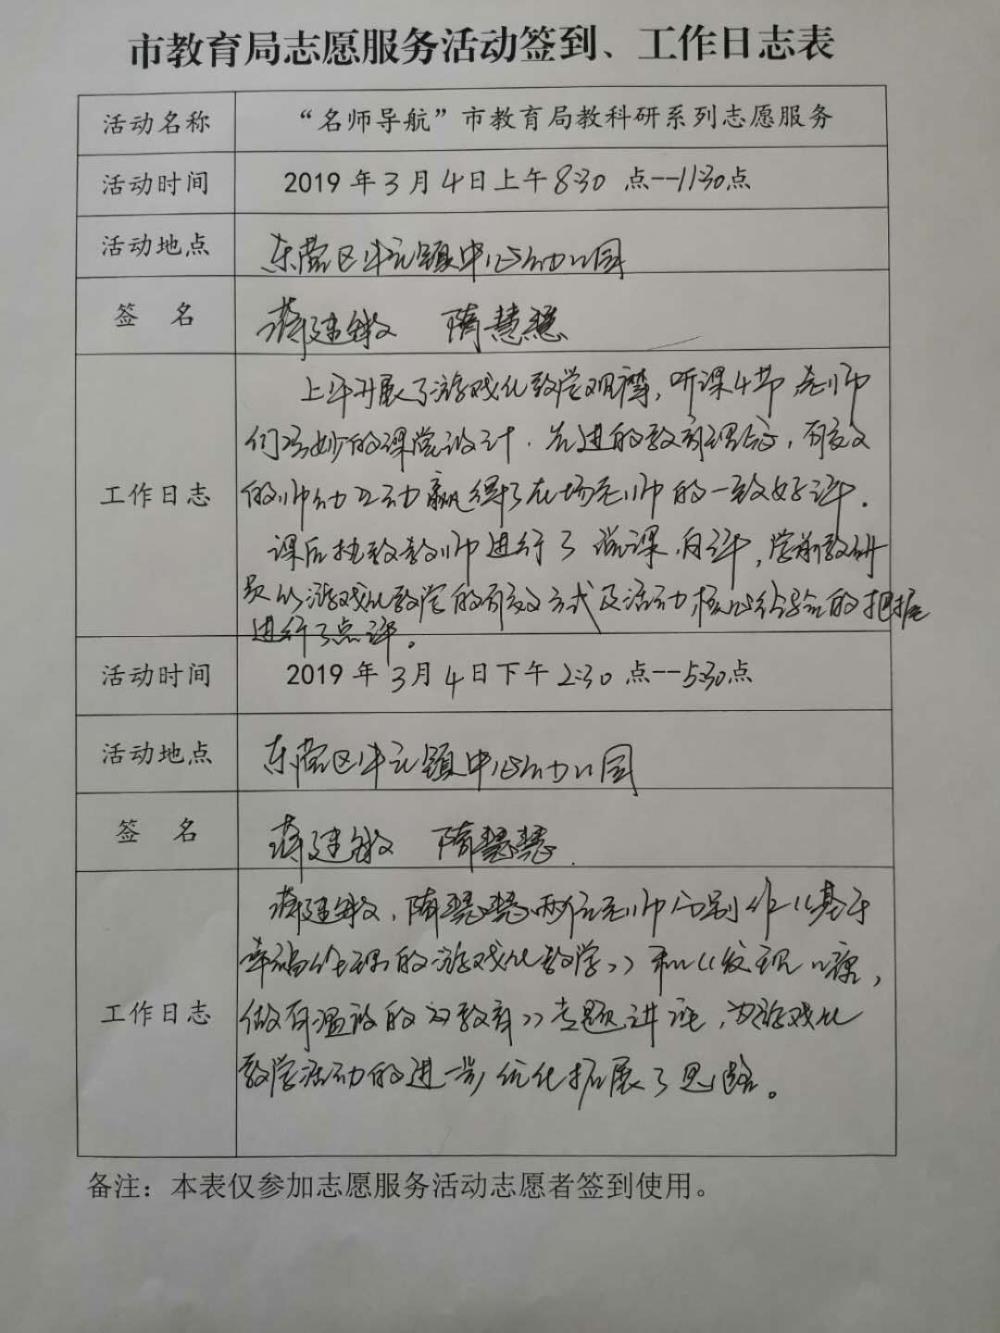 市教育局志愿服务活动签到、工作日志表
活动名称 “名师导航”市教育局教科研系列志愿服务
活动时间 2019年3月4日上午8:30点--11:30点
活动地点 东营区牛庄镇中心幼儿园
签 名 蒋建敏 隋慧慧
工作日志
上午开展了游戏化教学观摩，听课4节，老师
们巧妙的课堂设计、先进的教育理念，有效
的师幼互动赢得了在场老师的一致好评．
课后执教教师进行了说课、自评，学前教研
员从游戏化教学的有效方式及活动核心经验的把握
进行了点评。
活动时间 2019年3月4日下午2:30点--5:30点
活动地点 东营区牛庄镇中心幼儿园
签 名 蒋建敏 隋慧慧．
工作日志
蒋建敏，隋慧慧两位老师分别作《基于
幸福的游戏化教学》和《发现儿童，
做有温度的教育》专题讲座，为游戏化
教学活动的进一步优化拓展了思路。
备注：本表仅参加志愿服务活动志愿者签到使用。